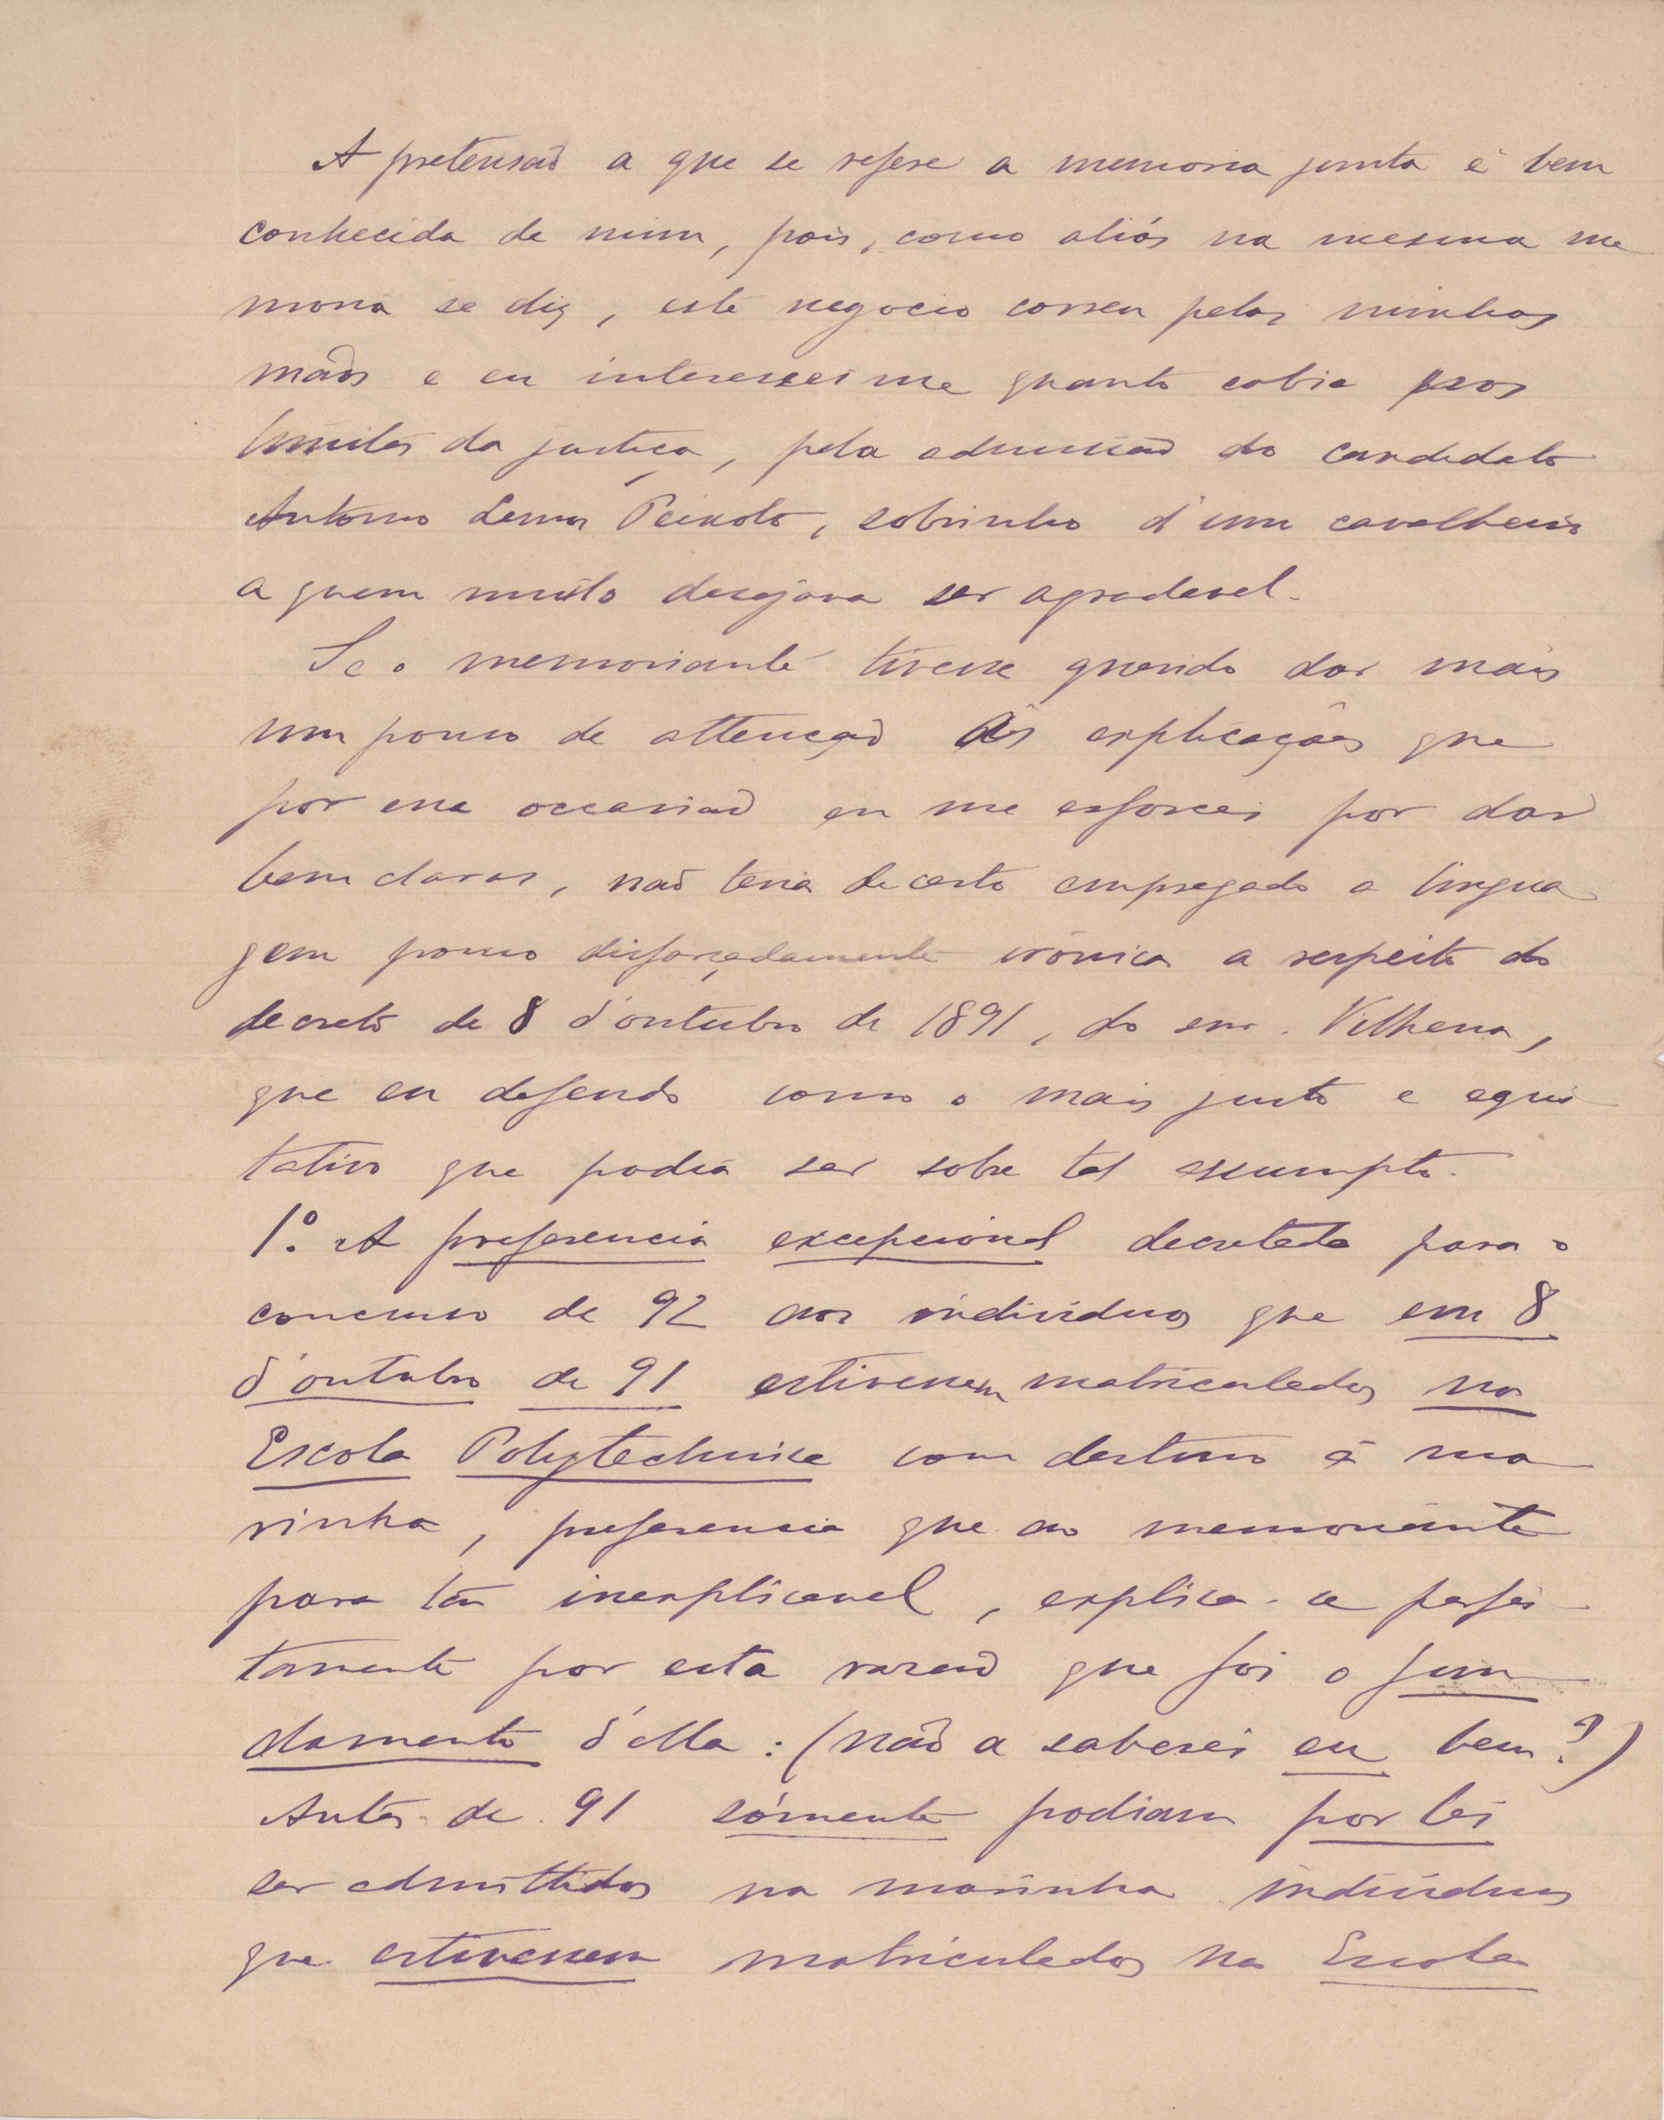 A pretensaõ a que se refere a memoria junta é bem
conhecida de mim, pois, como aliás na mesma me
moria se diz, este negocio correu pelas minhas
maõs e eu interessei me quanto cabia nos
limites da justiça, pela admissaõ do candidato
Antonio Lemos Peixoto, sobrinho d'um cavalheiro
a quem muito desejava ser agradavel.
Se o memoriante tivesse querido dar mais
um pouco de attençaõ ás explicações que
por essa occasiaõ eu me esforcei por dar
bem claras, naõ teria de certo empregado a lingua
gem pouco disforçadamente irónica a respeito do
decreto de 8 d'outubro de 1891, do snr. Vilhena,
que eu defendo como o mais justo e equi
tativo que podia ser sobre tal assumpto.
1.º A preferencia excepcional decretada para o
concurso de 92 aos individuos que em 8
d'outubro de 91 estivessem matriculados na
Escola Polytechnica com destino á ma
rinha, preferencia que ao memoriante
para tão inexplicavel, explica-se perfei
tamente por esta razaõ que foi o fun
damento d'ella: (naõ a saberei eu bem?)
Antes de 91 sómente podiam por lei
ser admittidos na marinha individuos
que estivessem matriculados na Escola